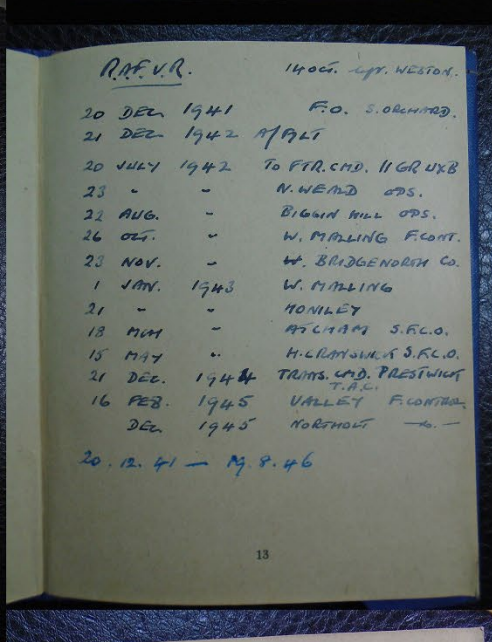 R.A.F.V.R. 14 OCT. WESTON.
20 DEC. 1941 F.O. S. ORCHARD.
21 DEC 1942 A/FLT
20 JULY 1942 TO FTR.CMD. 11 GR UXB
23 " " N. WEALD OPS.
22 AUG. " BIGGIN HILL OPS.
26 OCT. " W. MALLING F.CONT.
23 NOV. " W. BRIDGENORTH CO.
1 JAN. 1943 W. MALLING
21 " " HONILEY
18 MCH " ATCHAM S.F.C.O.
15 MAY " H. CRANSWICK S.F.C.O.
21 DEC. 1944 TRANS. CMD. PRESTWICK
T.A.C.
16 FEB. 1945 VALLEY F.CONTER.
DEC 1945 NORTHOLT
20.12.41 — 19.8.46
13